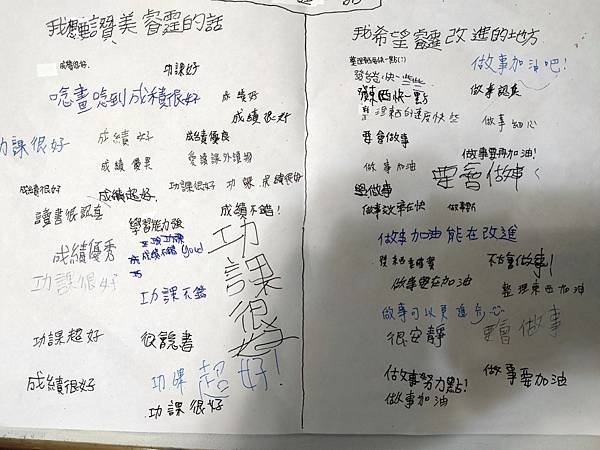 我想讚美睿霆的話
成績很好.
功課好
唸書唸到成績很好
成績好
成績很好
功課很好
成績好
成績優良
成績優異
愛讀課外讀物
成績很好
成績超好.
功課很好
功課.成績很好
讀書很認真
學習能力強
成績不錯!
成績優秀
功課很好
功課很好
功課不錯
功課超好
很會讀書
成績很好
功課超好!
功課很好
我希望睿霆改進的地方
做事加油吧!
做事認真
做事細心
要會做事
做事要再加油!
做事加油
要會做事
學做事
做事效率在快
做事加油能在改進
不會做事!
做事要在加油
整理東西加油
做事可以更專心
很安靜
要會做事
做事努力點!
做事要加油
做事加油